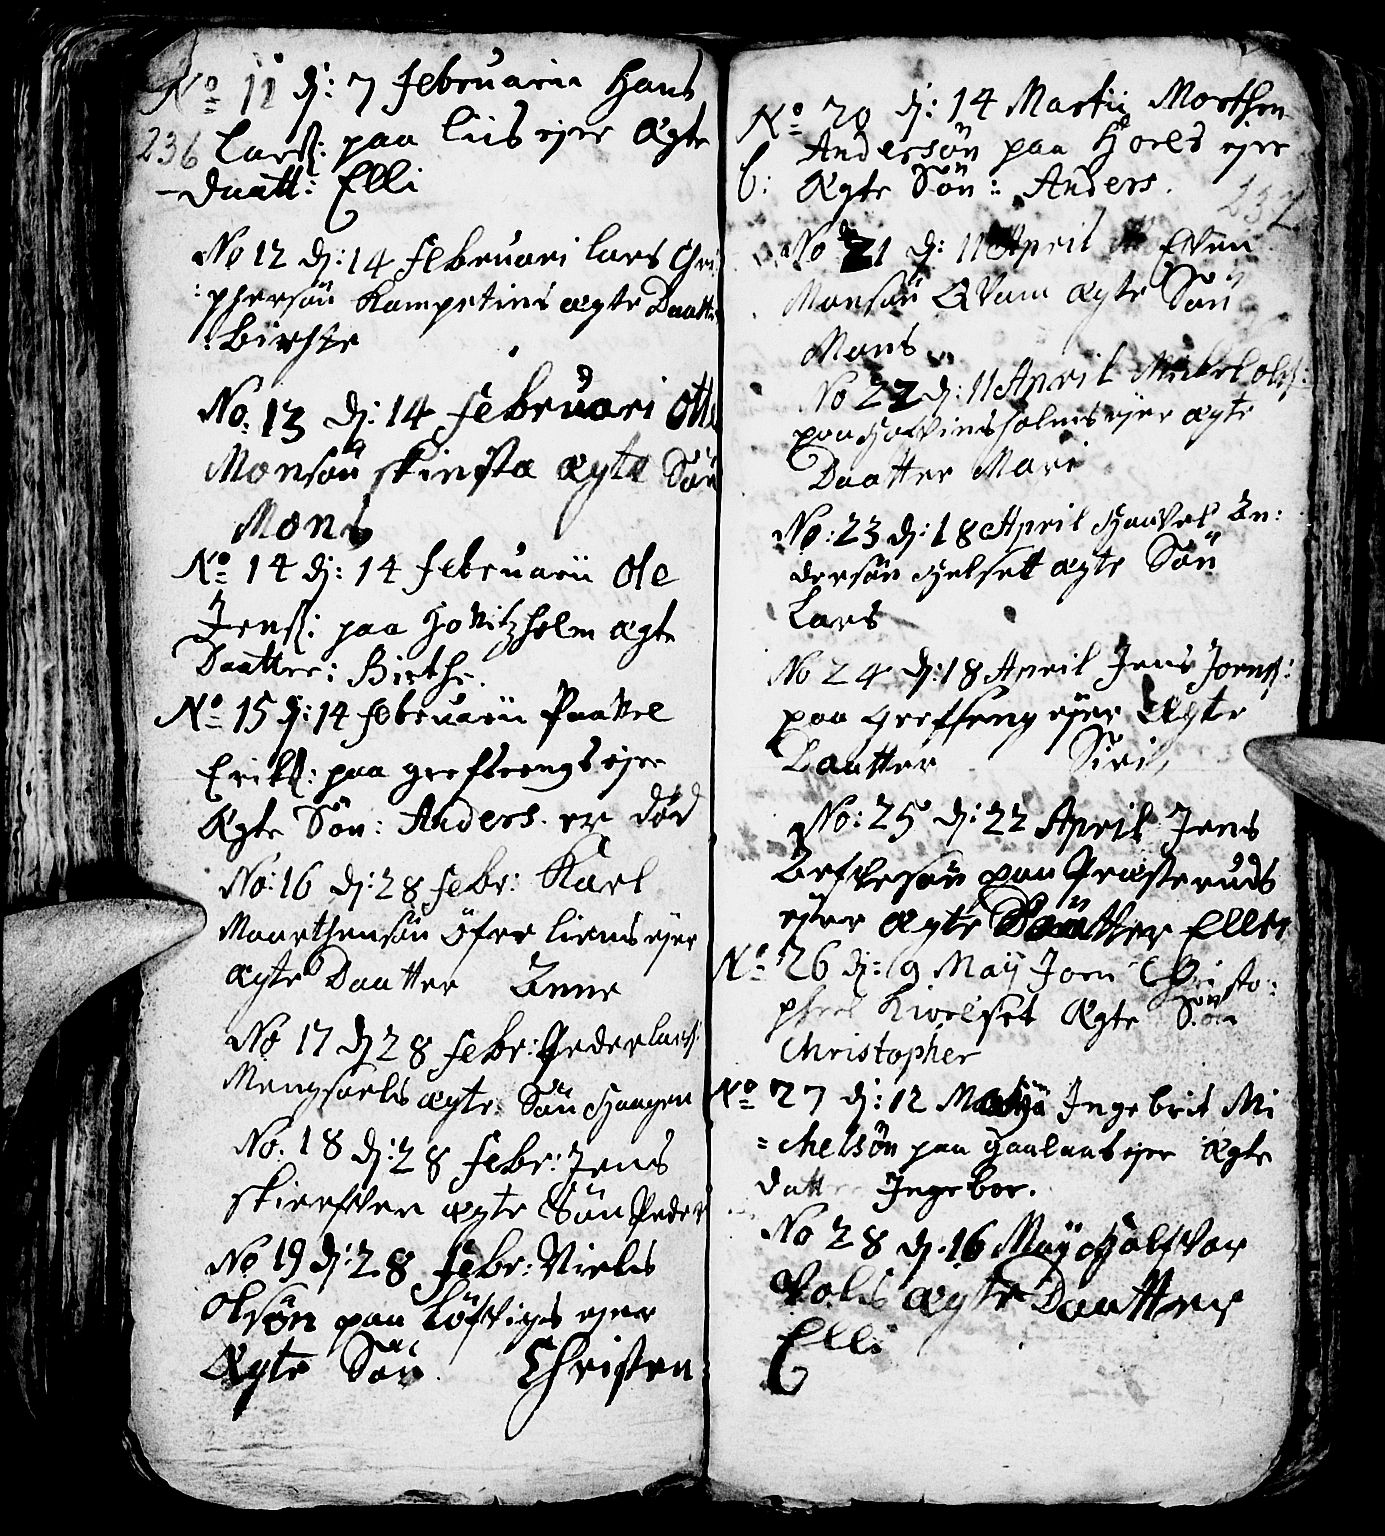 No 11 dj: 7 Februarii Hans
236 Larß: paa Liis ejer Ægte
Daatt: Elli
No 12 dj: 14 Februari Lars Chri
:phersön Kampetins ægte Daatt:
:Birthe
No: 13 dj: 14 Februari Otte
Monsön skinsta ægte Sön
Mons
No 14 dj: 14 Februarii Ole
Jenß: paa Hovitzholm Ægte
Daatter: Birthe.
No 15 dj: 14 Februarii Paavel
Erikß: paa grefsengs ejer
Ægte Sön: Anders. er död
No: 16 dj: 28 Febr: Karl
Maarthensön öfre Liens ejer
ægte Daatter Anne
No 17 dj 28 Febr: Peder Larß:
Mengshols ægte Sön Haagen
No. 18 dj: 28 Febr: Jens
skirefver ægte Sön Peder
No 19 dj: 28 Febr: Niels
Olsön paa Löfviges ejer
Ægte Sön Christen
No 20 dj: 14 Martii Morthen
Andersön paa Hoels ejer
C: Ægte Sön: Anders.
237
No 21 dj: 11 April Even
Monsön Qvam ægte Sön
Mons
No 22 dj: 11 April Mickel Olß:
paa ejer ægte
Daatter Mari
No: 23 dj: 18 April Haavel An:
dersön Helsett ægte Sön
Lars
No 24 dj: 18 April Jens Jörenß:
paa Grefseng ejer Ægte
Daatter Siri
No: 25 dj: 22 April Jens
paa Præsteruds
ejer ægte Daatter Ellen
No 26 dj: 9 Maÿ Joen Christo:
phers Kivelset Ægte Sön
Christopher
No 27 dj: 12 Maÿ Ingebrit Mi
=chelsön paa Haalans ejer Ægte
Datt Ingebor.
No 28 dj. 16 Maÿ Halfvor
Vols ægte Daatter
Elli